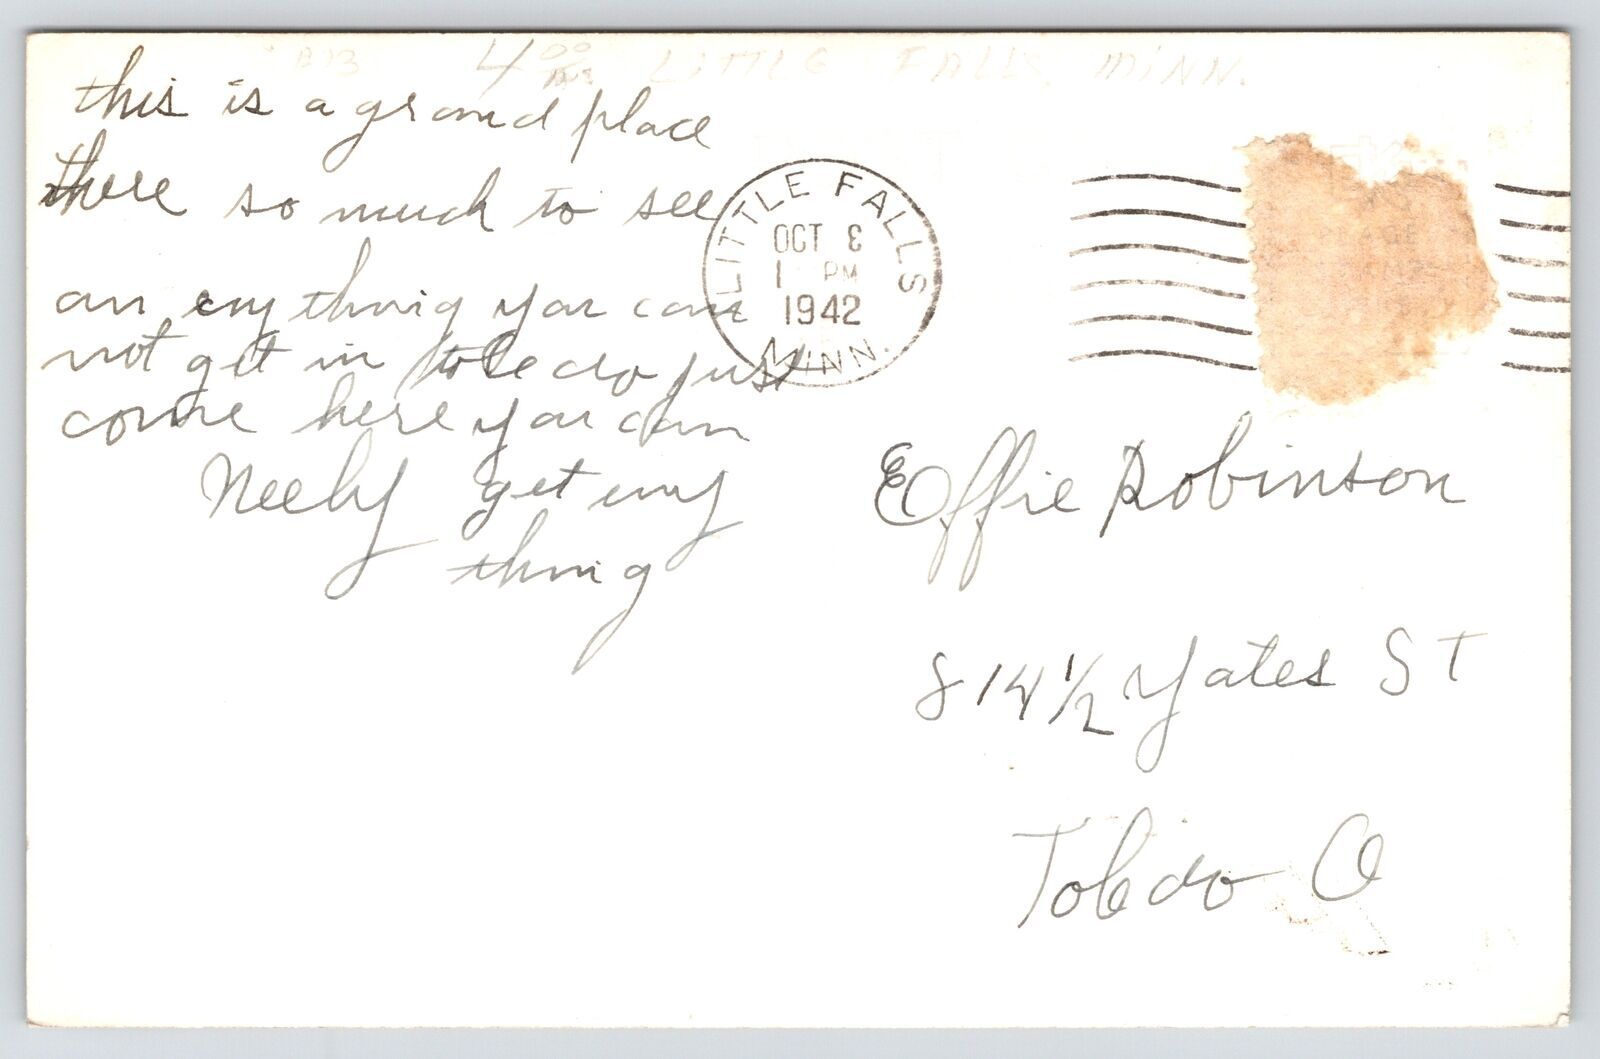 4 00 LITTLE FALLS MINN.
this is a grand place
there so much to see
an eny thing you can
not get in toledo just
come here you can
Neely get eny
thing
LITTLE FALLS
OCT 8
1 PM
1942
MINN.
PLACE
STAMP
Effie Robinson
814 1/2 Yates ST
Toledo O